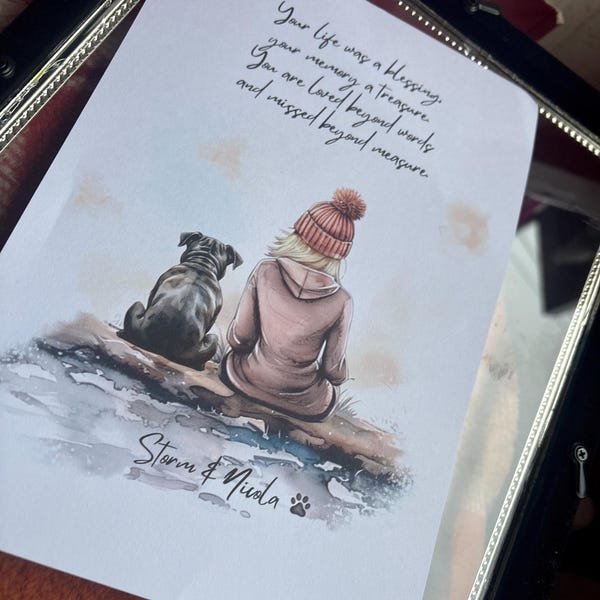 Your life was a blessing,
your memory a treasure.
You are loved beyond words
and missed beyond measure.
Storm & Nicola